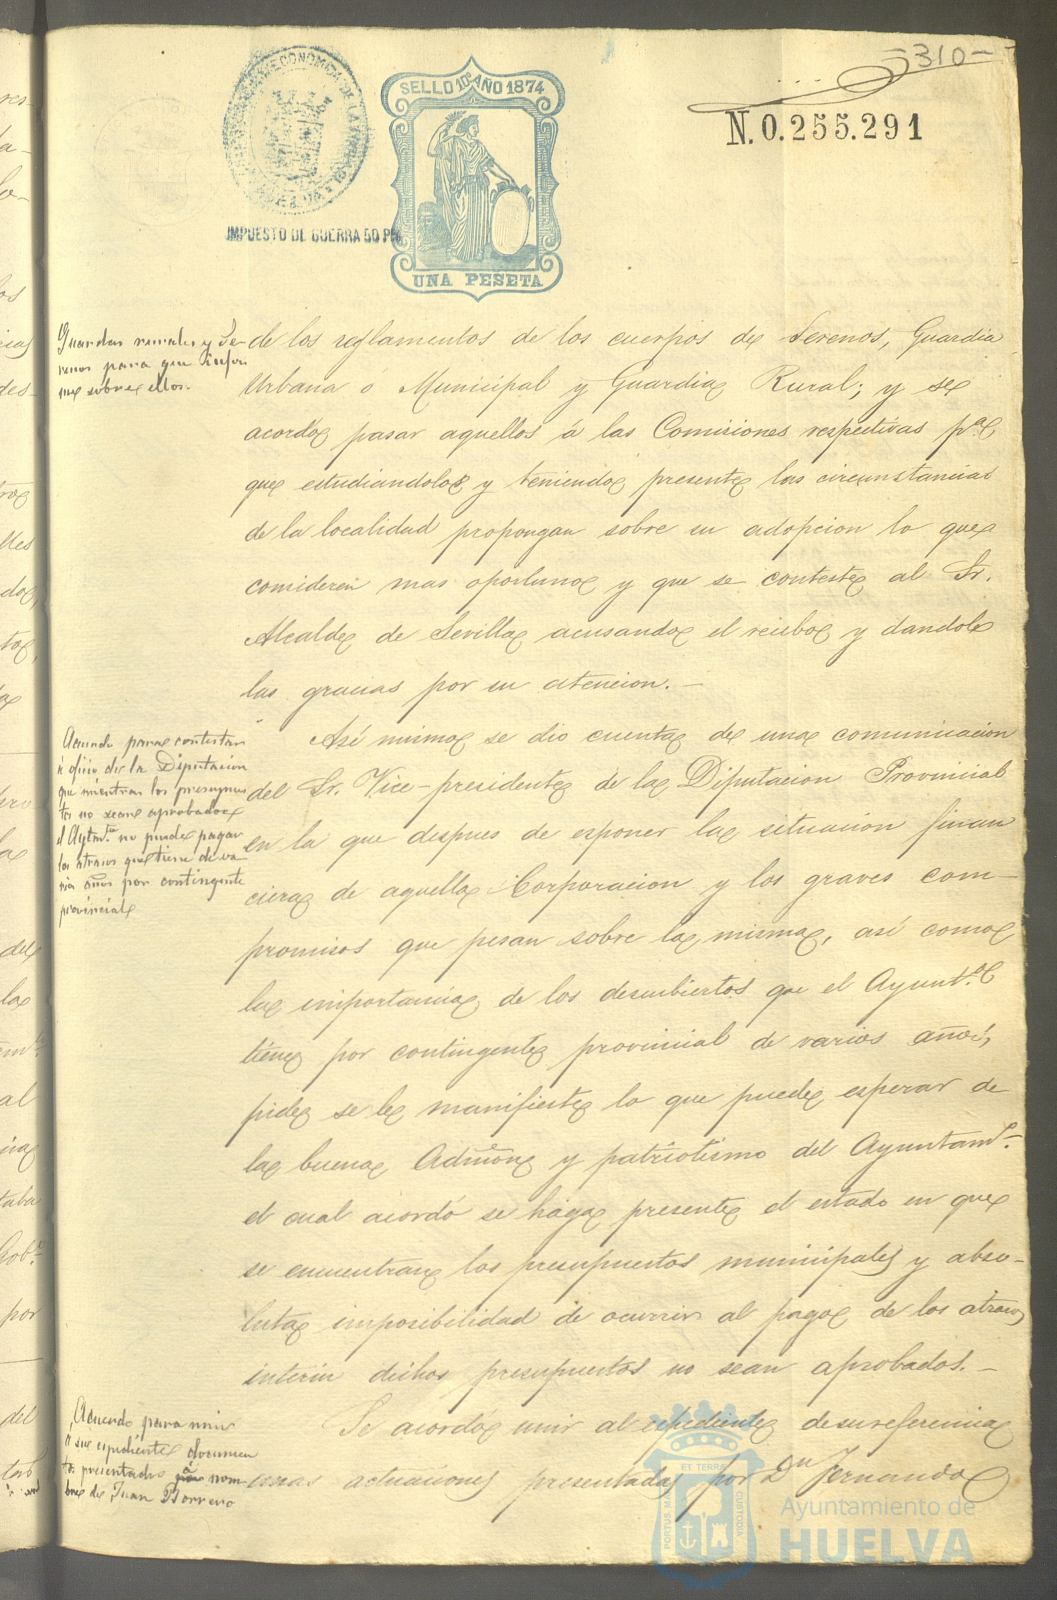 310
SELLO 10º AÑO 1874
N. 0.255.291
IMPUESTO DE GUERRA 50 P%
UNA PESETA
Guardas rurales y Se-
renos para que infor
me sobre ellos.
de los reglamentos de los cuerpos de Serenos, Guardia
Urbana ó Municipal y Guardia Rural; y se
acordó pasar aquellos á las Comisiones respectivas pª
que estudiandolos y teniendo presente las circunstancias
de la localidad propongan sobre su adopcion lo que
consideren mas oportuno y que se conteste al Sr.
Alcalde de Sevilla acusando el recibo y dandole
las gracias por su atencion.—
Acuerdo para contestar
á oficio de la Diputacion
que mientras los presupues
tos no sean aprobados
el Aytmto no puede pagar
los atrasos que tiene de va
rios años por contingente
provincial
Asi mismo se dio cuenta de una comunicacion
del Sr. Vice-presidente de la Diputacion Provincial
en la que despues de esponer la situacion finan
ciera de aquella Corporacion y los graves com-
promisos que pesan sobre la misma, así como
la importancia de los descubiertos que el Ayuntº
tiene por contingente provincial de varios años,
pide se le manifieste lo que puede esperar de
la buena Admon y patriotismo del Ayuntamº
el cual acordó se haga presente el estado en que
se encuentran los presupuestos municipales y abso-
luta imposibilidad de ocurrir al pago de los atrasos
interin dichos presupuestos no sean aprobados.—
Acuerdo para unir
á su espediente documen
tos presentados á nom
bre de Juan Borrero
Se acordó unir al espediente de su referencia
unas actuaciones presentadas por Dn Fernando
PORTUS MARIS ET TERRAE CUSTODIA
Ayuntamiento de
HUELVA